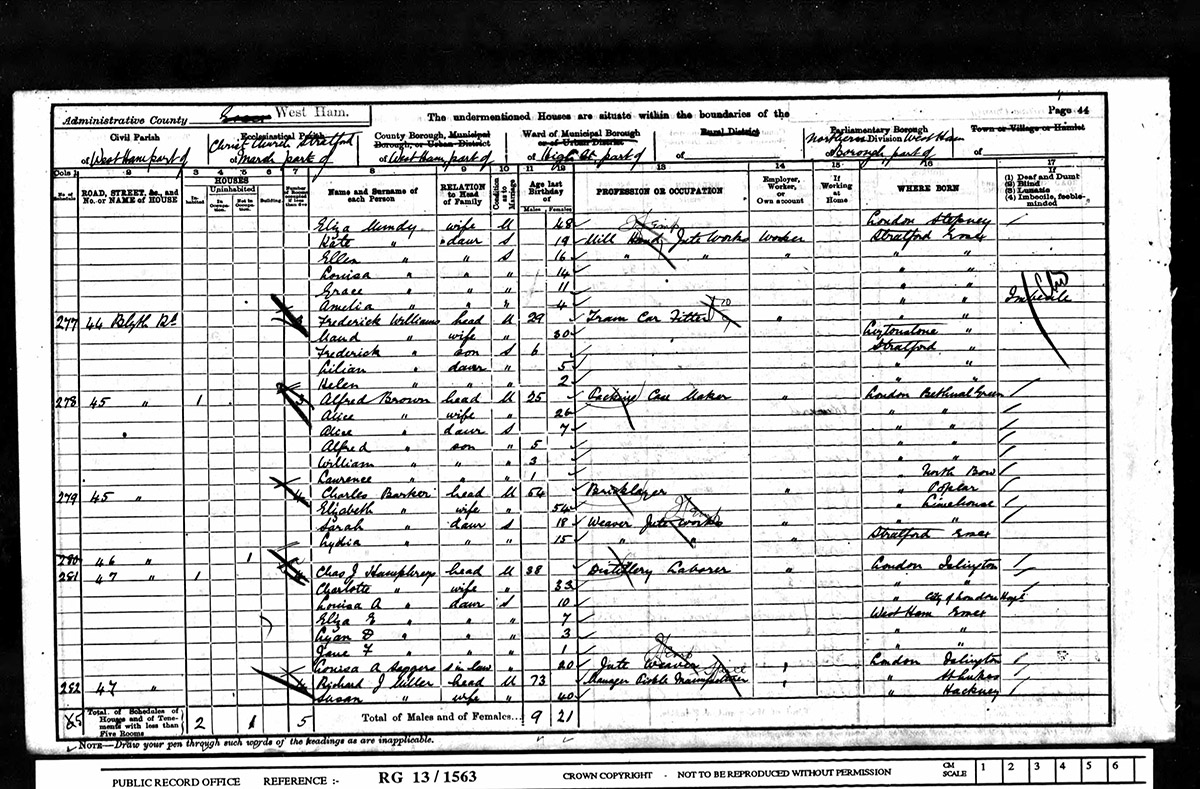 Page 44
Administrative County West Ham.
The undermentioned Houses are situate within the boundaries of the
Civil Parish
of West Ham part of
Ecclesiastical Parish
Christ Church Stratford
of Marsh part of
County Borough, Municipal
Borough, or Urban District
of West Ham part of
Ward of Municipal Borough
or of Urban District
of High St. part of
Rural District
of
Parliamentary Borough
Northern Division West Ham
Borough part of
Town or Village or Hamlet
of
Cols. 1 2 3 4 5 6 7 8 9 10 11 12 13 14 15 16 17
No. of
ROAD, STREET, &c., and
No. or NAME of HOUSE
HOUSES
Inhabited
Uninhabited
In Occupation.
Not in Occupation.
Building.
Number of Rooms occupied if less than five
Name and Surname of
each Person
RELATION
to Head
of Family
Condition
as to
Marriage
Age last
Birthday
of
Males
Females
PROFESSION OR OCCUPATION
Employer,
Worker,
or
Own account
If
Working
at
Home
WHERE BORN
If
(1) Deaf and Dumb
(2) Blind
(3) Lunatic
(4) Imbecile, feeble-
minded
Eliza Mundy wife M 48 London Stepney
Kate " daur S 19 Mill Hand Jute Works Worker Stratford Essex
Ellen " " S 16 " " " " "
Louisa " " " 14 " "
Grace " " " 11 " "
Amelia " " " 4 " " Imbecile
277 44 Blyth Rd Frederick Williams head M 29 Tram Car Fitter "
Maud " wife " 30 Leytonstone "
Frederick " son S 6 Stratford "
Lilian " daur " 5 " "
Helen " " " 2 " "
278 45 " 1 3 Alfred Brown head M 25 Packing Case Maker " London Bethnal Green
Alice " wife " 26 " "
Alice " daur S 7 " "
Alfred " son " 5 " "
William " " " 3 " "
Laurence " " " 1 " North Bow
279 45 " 4 Charles Barker head M 54 Bricklayer " " Poplar
Elizabeth " wife " 54 " Limehouse
Sarah " daur S 18 Weaver Jute Works " " "
Lydia " " " 15 " " Stratford Essex
280 46 " 1
281 47 " 1 4 Chas J Humphreys head M 38 Distillery Laborer " London Islington
Charlotte " wife " 33 " "
Louisa A " daur S 10 " City of London Hospl
Eliza E " " " 7 West Ham Essex
" " " 3 " "
Jane F " " " 1 " "
Louisa A Saggers s in law " 20 Jute Weaver " London Islington
282 47 " 4 Richard J Miller head M 73 Manager Pickle " " St Lukes
Susan " wife " 40 " Hackney
Total of Schedules of
Houses and of Tene-
ments with less than
Five Rooms
2 1 5
Total of Males and of Females... 9 21
NOTE—Draw your pen through such words of the headings as are inapplicable.
PUBLIC RECORD OFFICE REFERENCE :- RG 13/1563 CROWN COPYRIGHT - NOT TO BE REPRODUCED WITHOUT PERMISSION
CM
SCALE 1 2 3 4 5 6